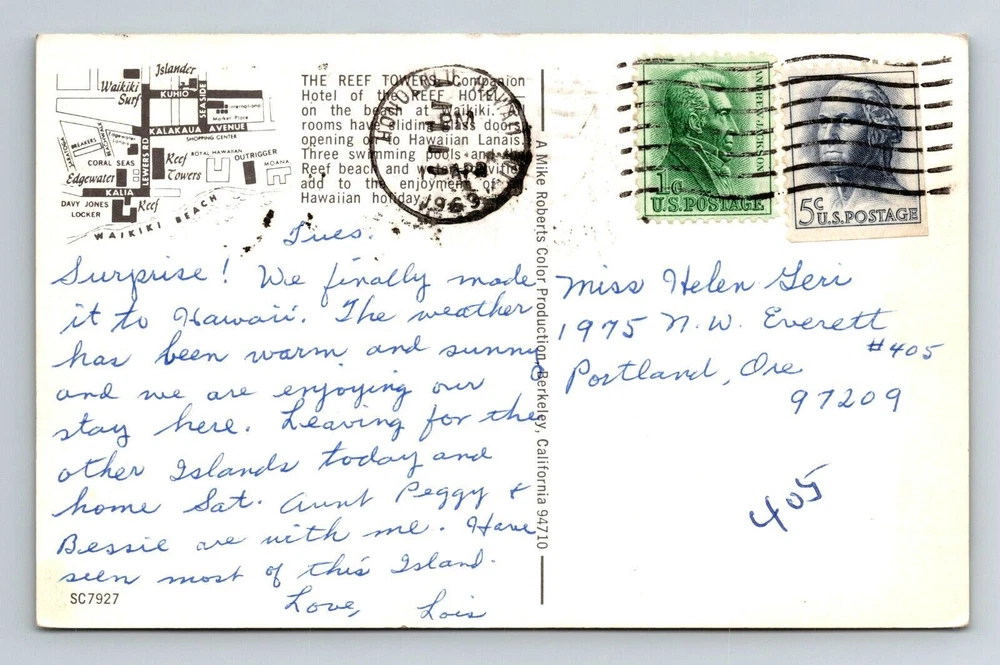 Islander
Waikiki
Surf
KUHIO
SEASIDE
International
Market Place
KALAKAUA AVENUE
SHOPPING CENTER
BREAKERS
LEWERS RD
CORAL SEAS
Edgewater
KALIA
Reef
Towers
ROYAL HAWAIIAN
OUTRIGGER
MOANA
DAVY JONES
LOCKER
Reef
WAIKIKI BEACH
THE REEF TOWERS, Companion
Hotel of the REEF HOTEL
on the beach at Waikiki.
rooms have sliding glass doors
opening to Hawaiian Lanais.
Three swimming pools and the
Reef beach and water
add to the enjoyment of
Hawaiian holiday.
HONOLULU, HAWAII
PM
APR
1969
ANDREW JACKSON
1c
U.S. POSTAGE
5c
U.S. POSTAGE
A Mike Roberts Color Production, Berkeley, California 94710
Tues.
Surprise! We finally made
it to Hawaii. The weather
has been warm and sunny
and we are enjoying our
stay here. Leaving for the
other Islands today and
home Sat. Aunt Peggy &
Bessie are with me. Have
seen most of this Island.
Love, Lois
SC7927
Miss Helen Geri
1975 N.W. Everett
#405
Portland, Ore
97209
405